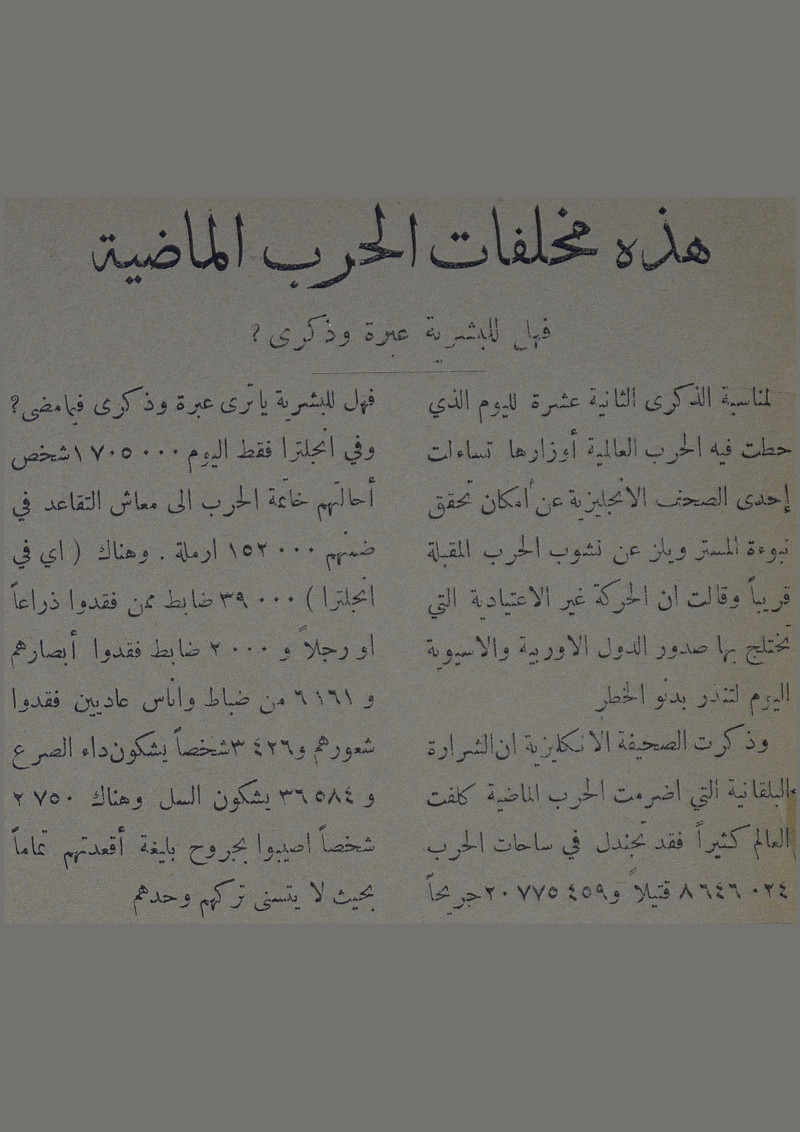 هذه مخلفات الحرب الماضية
فهل للبشرية عبرة وذكرى ؟
لمناسبة الذكرى الثانية عشرة لليوم الذي
حطت فيه الحرب العالمية أوزارها تساءلت
إحدى الصحف الانجليزية عن أمكان تحقق
نبوءة المستر ويلز عن نشوب الحرب المقبلة
قريباً وقالت ان الحركة غير الاعتيادية التي
تختلج بها صدور الدول الاوربية والاسيوية
اليوم لتنذر بدنو الخطر
وذكرت الصحيفة الانكليزية ان الشرارة
البلقانية التي اضرمت الحرب الماضية كلفت
العالم كثيراً فقد تجندل في ساحات الحرب
٨ ٦٤٦ ٠٢٤ قتيلاً و ٢٠ ٧٧٥ ٤٥٩ جريحاً
فهل للبشرية يا ترى عبرة وذكرى فيما مضى ؟
وفي انجلترا فقط اليوم ١ ٧٠٥ ٠٠٠ شخص
أحالتهم خاتمة الحرب الى معاش التقاعد في
ضمنهم ١٥٢ ٠٠٠ ارملة . وهناك ( اي في
انجلترا ) ٣٩ ٠٠٠ ضابط ممن فقدوا ذراعاً
او رجلاً و ٢ ٠٠٠ ضابط فقدوا أبصارهم
و ٦ ١٦١ من ضباط واناس عاديين فقدوا
شعورهم و ٣ ٤٢٦ شخصاً يشكون داء الصرع
و ٣٦ ٥٨٤ يشكون السل وهناك ٢ ٧٥٠
شخصاً اصيبوا بجروح بليغة أقعدتهم تماماً
بحيث لا يتسنى تركهم وحدهم